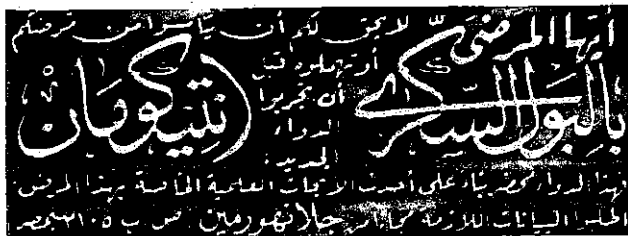 أيها المرضى
بالبول السكري
لا يحق لكم أن ييأسوا من مرضكم
أو تهملوه قبل
أن تجربوا
الدواء
الجديد:
انتيكومان
فهذا الدواء محضر بناء على أحدث الأبحاث العلمية الخاصة بهذا المرض
اطلبوا البيانات اللازمة مجانا من جلانهورمين ص ب ٢١٠٥ بمصر